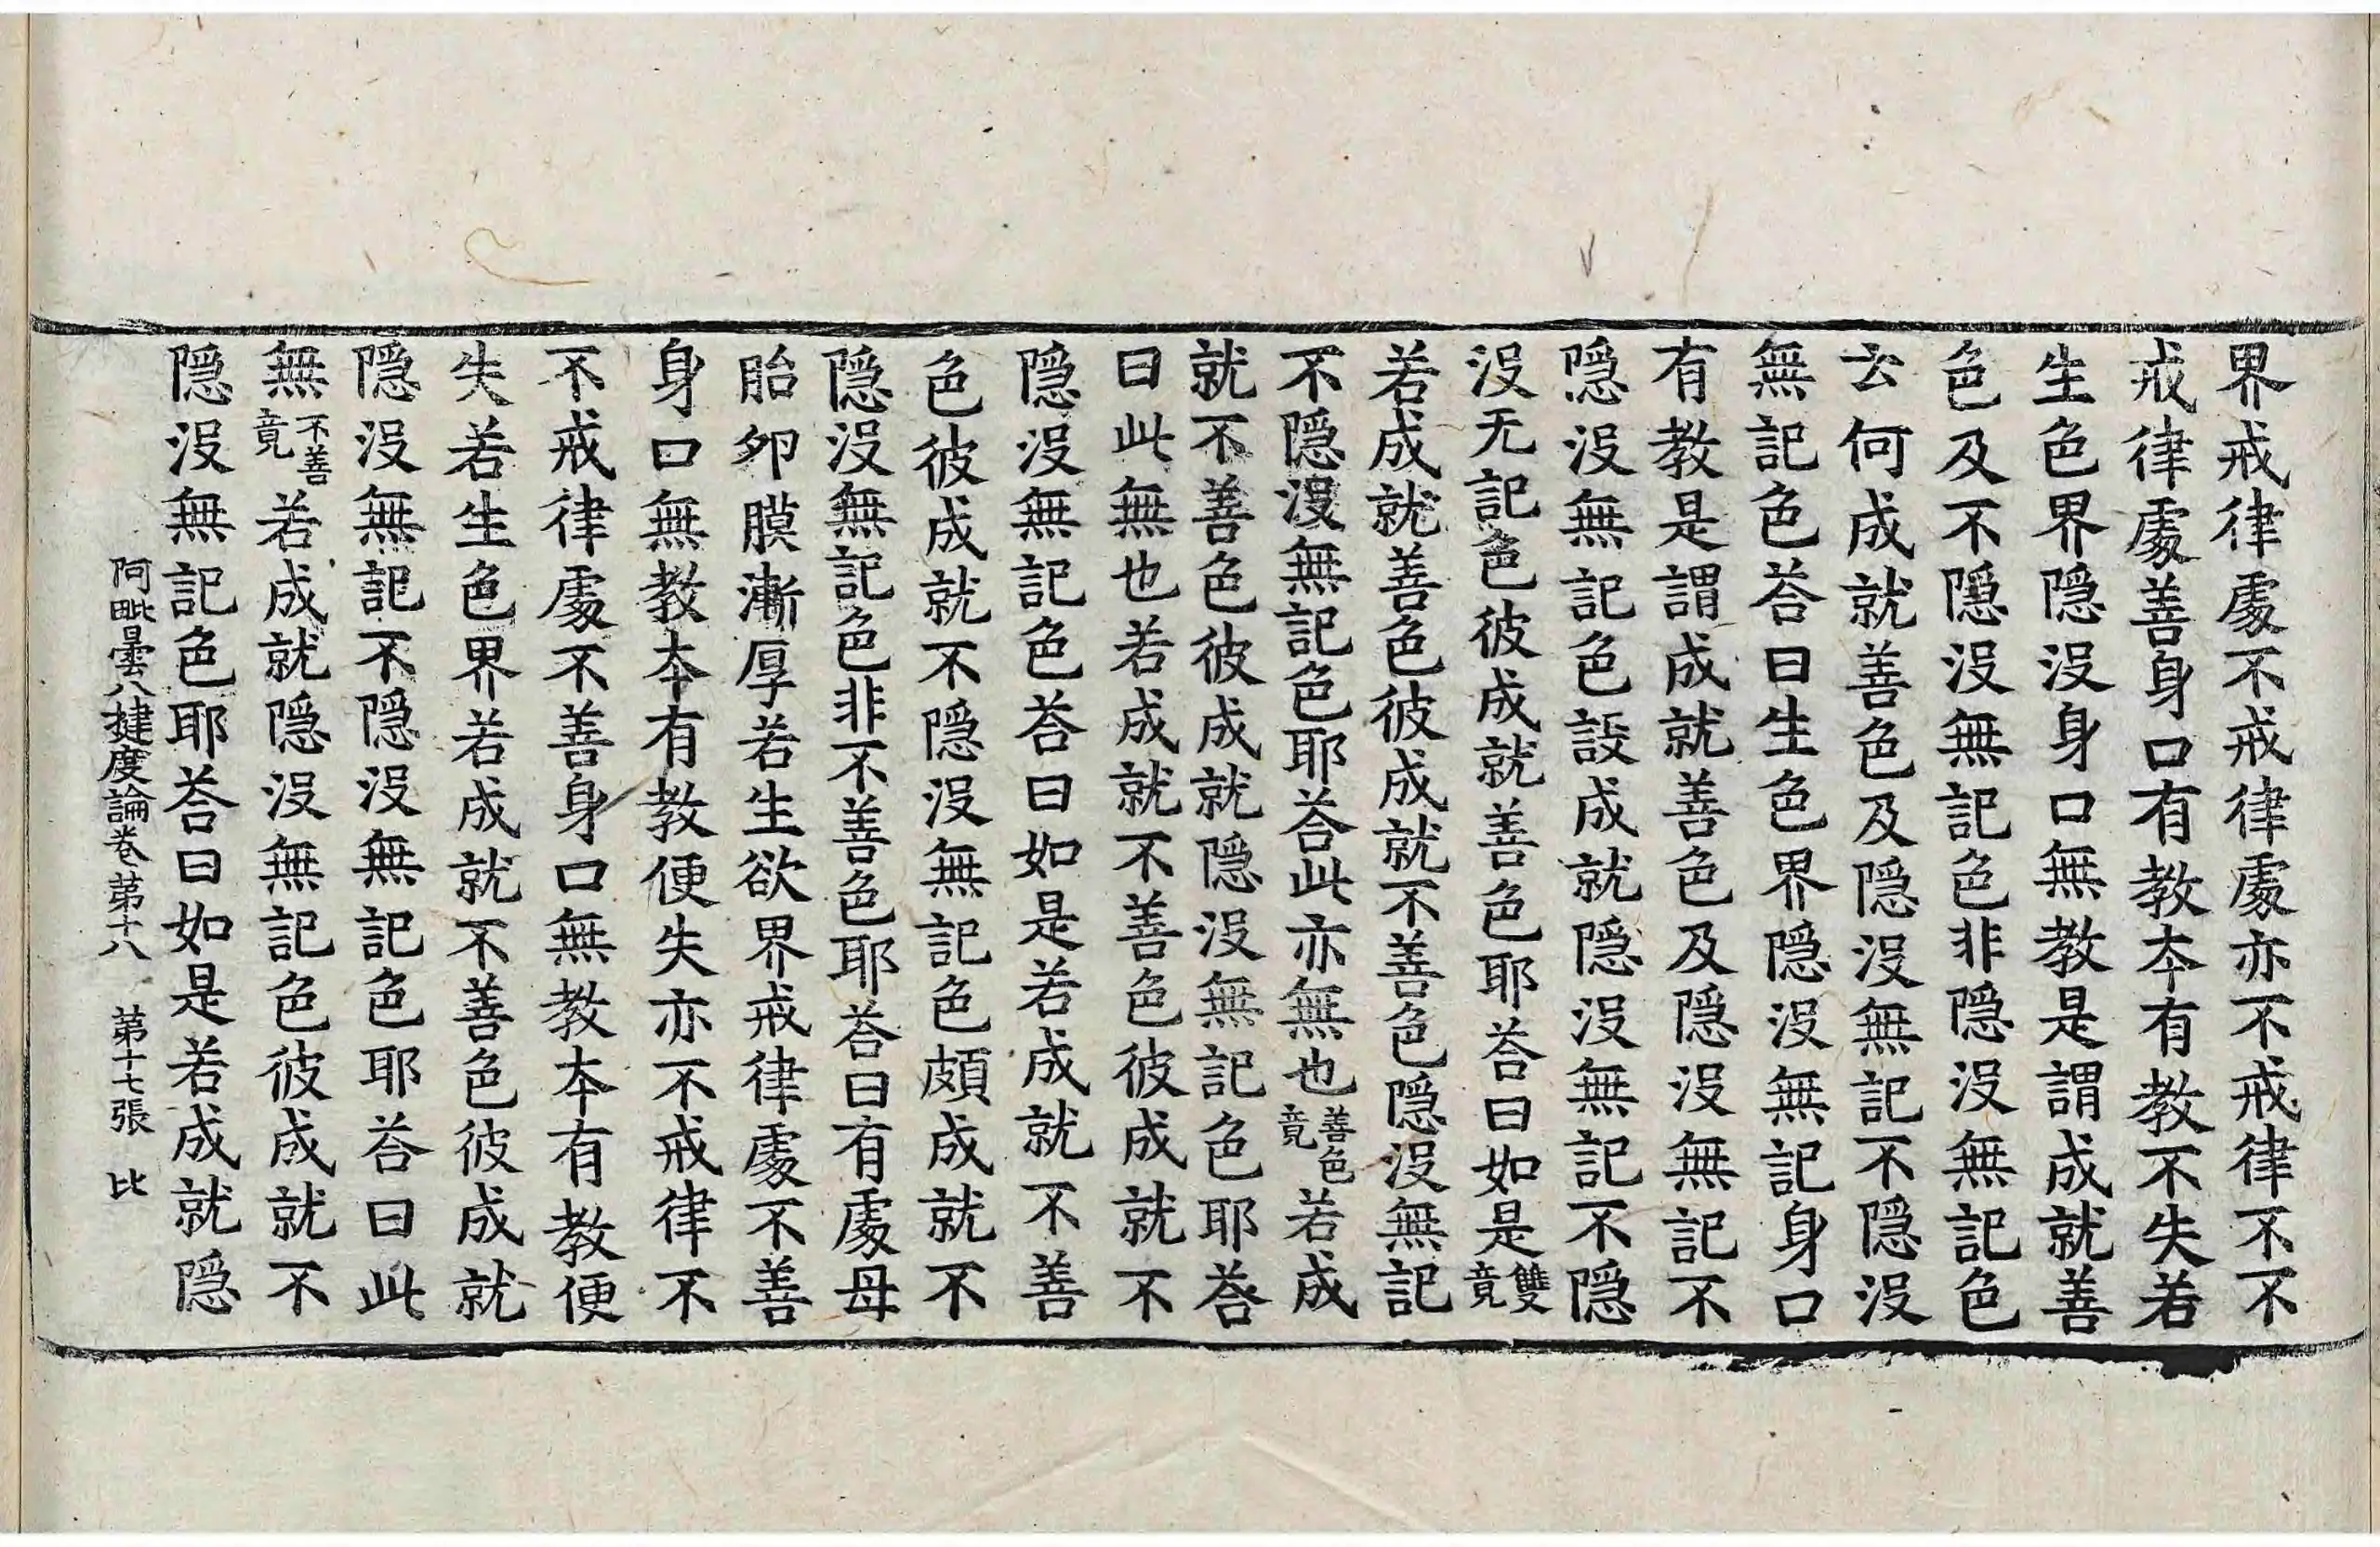 界戒律處不戒律處亦不戒律不不
戒律處善身口有教本有教不失若
生色界隱沒身口無教是謂成就善
色及不隱沒無記色非隱沒無記色
云何成就善色及隱沒無記不隱沒
無記色荅曰生色界隱沒無記身口
有教是謂成就善色及隱沒無記不
隱沒無記色設成就隱沒無記不隱
沒无記色彼成就善色耶荅曰如是雙竟
若成就善色彼成就不善色隱沒無記
不隱沒無記色耶荅此亦無也善色竟若成
就不善色彼成就隱沒無記色耶荅
曰此無也若成就不善色彼成就不
隱沒無記色荅曰如是若成就不善
色彼成就不隱沒無記色頗成就不
隱沒無記色非不善色耶荅曰有處母
胎卵膜漸厚若生欲界戒律處不善
身口無教本有教便失亦不戒律不
不戒律處不善身口無教本有教便
失若生色界若成就不善色彼成就
隱沒無記不隱沒無記色耶荅曰此
無不善竟若成就隱沒無記色彼成就不
隱沒無記色耶荅曰如是若成就隱
阿毗曇八揵度論卷苐十八 苐十七張 比